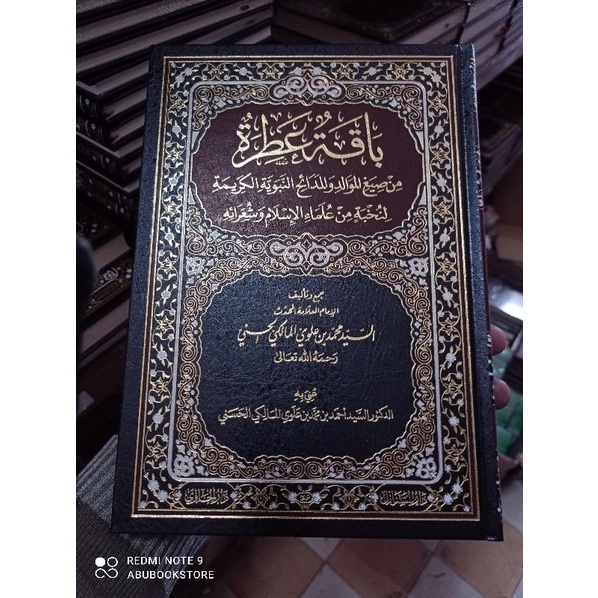 باقة عطرة
من صيغ الموالد والمدائح النبوية الكريمة
لنخبة من علماء الإسلام وشعرائه
جمع وتأليف
الإمام العلامة المحدث
السيد محمد بن علوي المالكي الحسني
رحمه الله تعالى
عني به
الدكتور السيد أحمد بن محمد بن علوي المالكي الحسني
REDMI NOTE 9
ABUBOOKSTORE